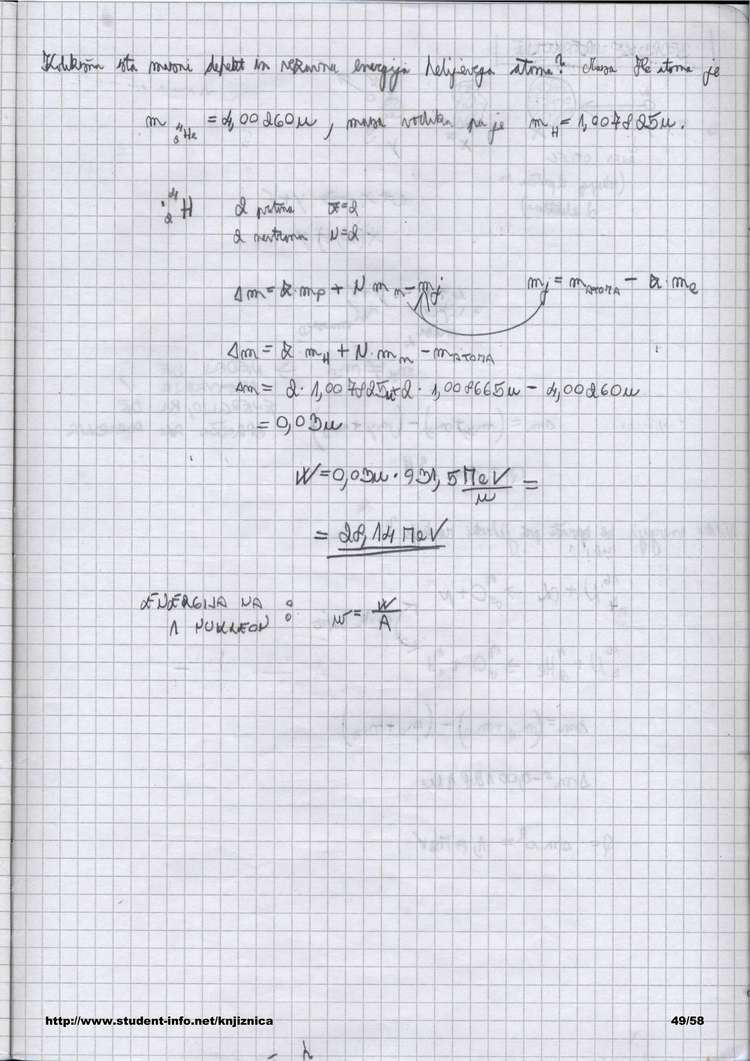 Kolikšna sta masni defekt in vezavna energija helijevega atoma? Masa He atoma je
m ⁴₂He = 4,00260u, masa vodika pa je m_H = 1,007825u.
⁴₂H 2 protona Z=2
2 nevtrona N=2
Δm = Z·m_p + N m_n - m_j m_j = m_ATOMA - Z·m_e
Δm = Z m_H + N·m_n - m_ATOMA
Δm = 2·1,007825u+2·1,008665u - 4,00260u
= 0,03u
W=0,03u·931,5 MeV/u =
= 28,14 MeV
ENERGIJA NA
1 NUKLEON : w = W/A
http://www.student-info.net/knjiznica 49/58